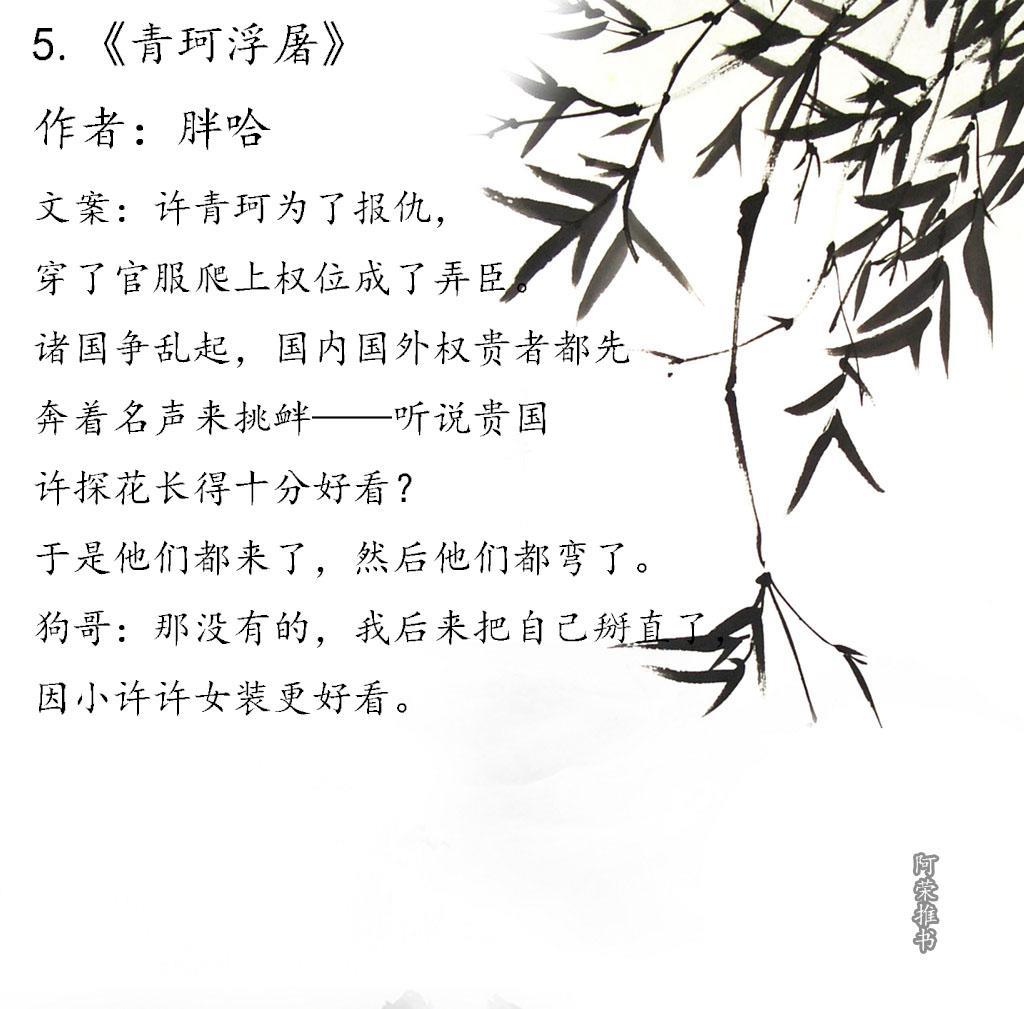 5.《青珂浮屠》
作者：胖哈
文案：许青珂为了报仇，
穿了官服爬上权位成了弄臣。
诸国争乱起，国内国外权贵者都先
奔着名声来挑衅——听说贵国
许探花长得十分好看？
于是他们都来了，然后他们都弯了。
狗哥：那没有的，我后来把自己掰直了，
因小许许女装更好看。
阿荣推书